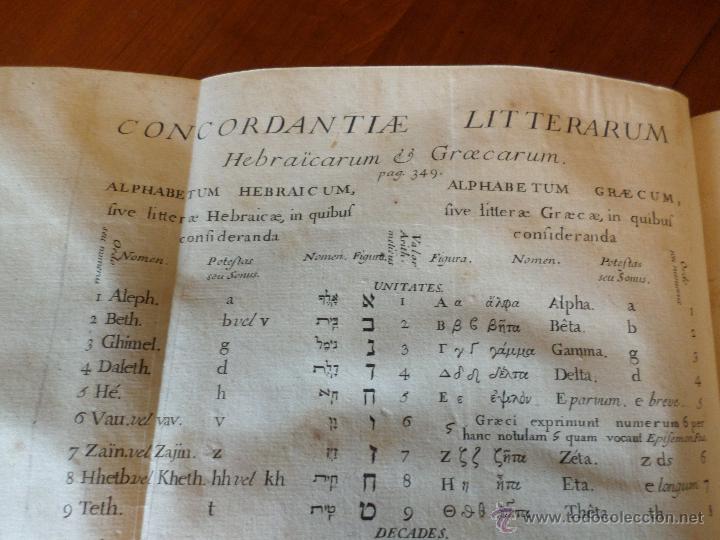 CONCORDANTIÆ LITTERARUM
Hebraïcarum & Græcarum.
pag. 349.
ALPHABETUM HEBRAICUM, ALPHABETUM GRÆCUM,
ſive litteræ Hebraicæ, in quibuſ ſive litteræ Græcæ, in quibuſ
conſideranda conſideranda
Ordo seu numerus Nomen. Poteſtas seu Sonus. Nomen. Figura. Valor Arith. Figura. Nomen. Poteſtas seu Sonus.
UNITATES.
1 Aleph. a אָלֶף א 1 Α α ἄλφα Alpha. a 1
2 Beth. b vel v בֵּית ב 2 Β β ϐ βῆτα Bêta. b 2
3 Ghimel. g גִּימֶל ג 3 Γ γ Γ γάμμα Gamma. g 3
4 Daleth. d דָּלֶת ד 4 Δ δ δέλτα Delta. d 4
5 Hé. h הֵא ה 5 Ε ε ἐψιλόν E parvum. e breve. 5
6 Vau. vel vav. v וָו ו 6 ϛ Græci exprimunt numerum 6 per
hanc notulam ϛ quam vocant Epiſemon
7 Zaïn. vel Zajin. z זַיִן ז 7 Ζ ζ ζῆτα Zéta. z ds 6
8 Hheth vel Kheth. hh vel kh חֵית ח 8 Η η ἦτα Eta. e longum 7
9 Teth. t טֵית ט 9 Θ ϑ θ θῆτα Thêta. th 8
DECADES.
© www.todocoleccion.net